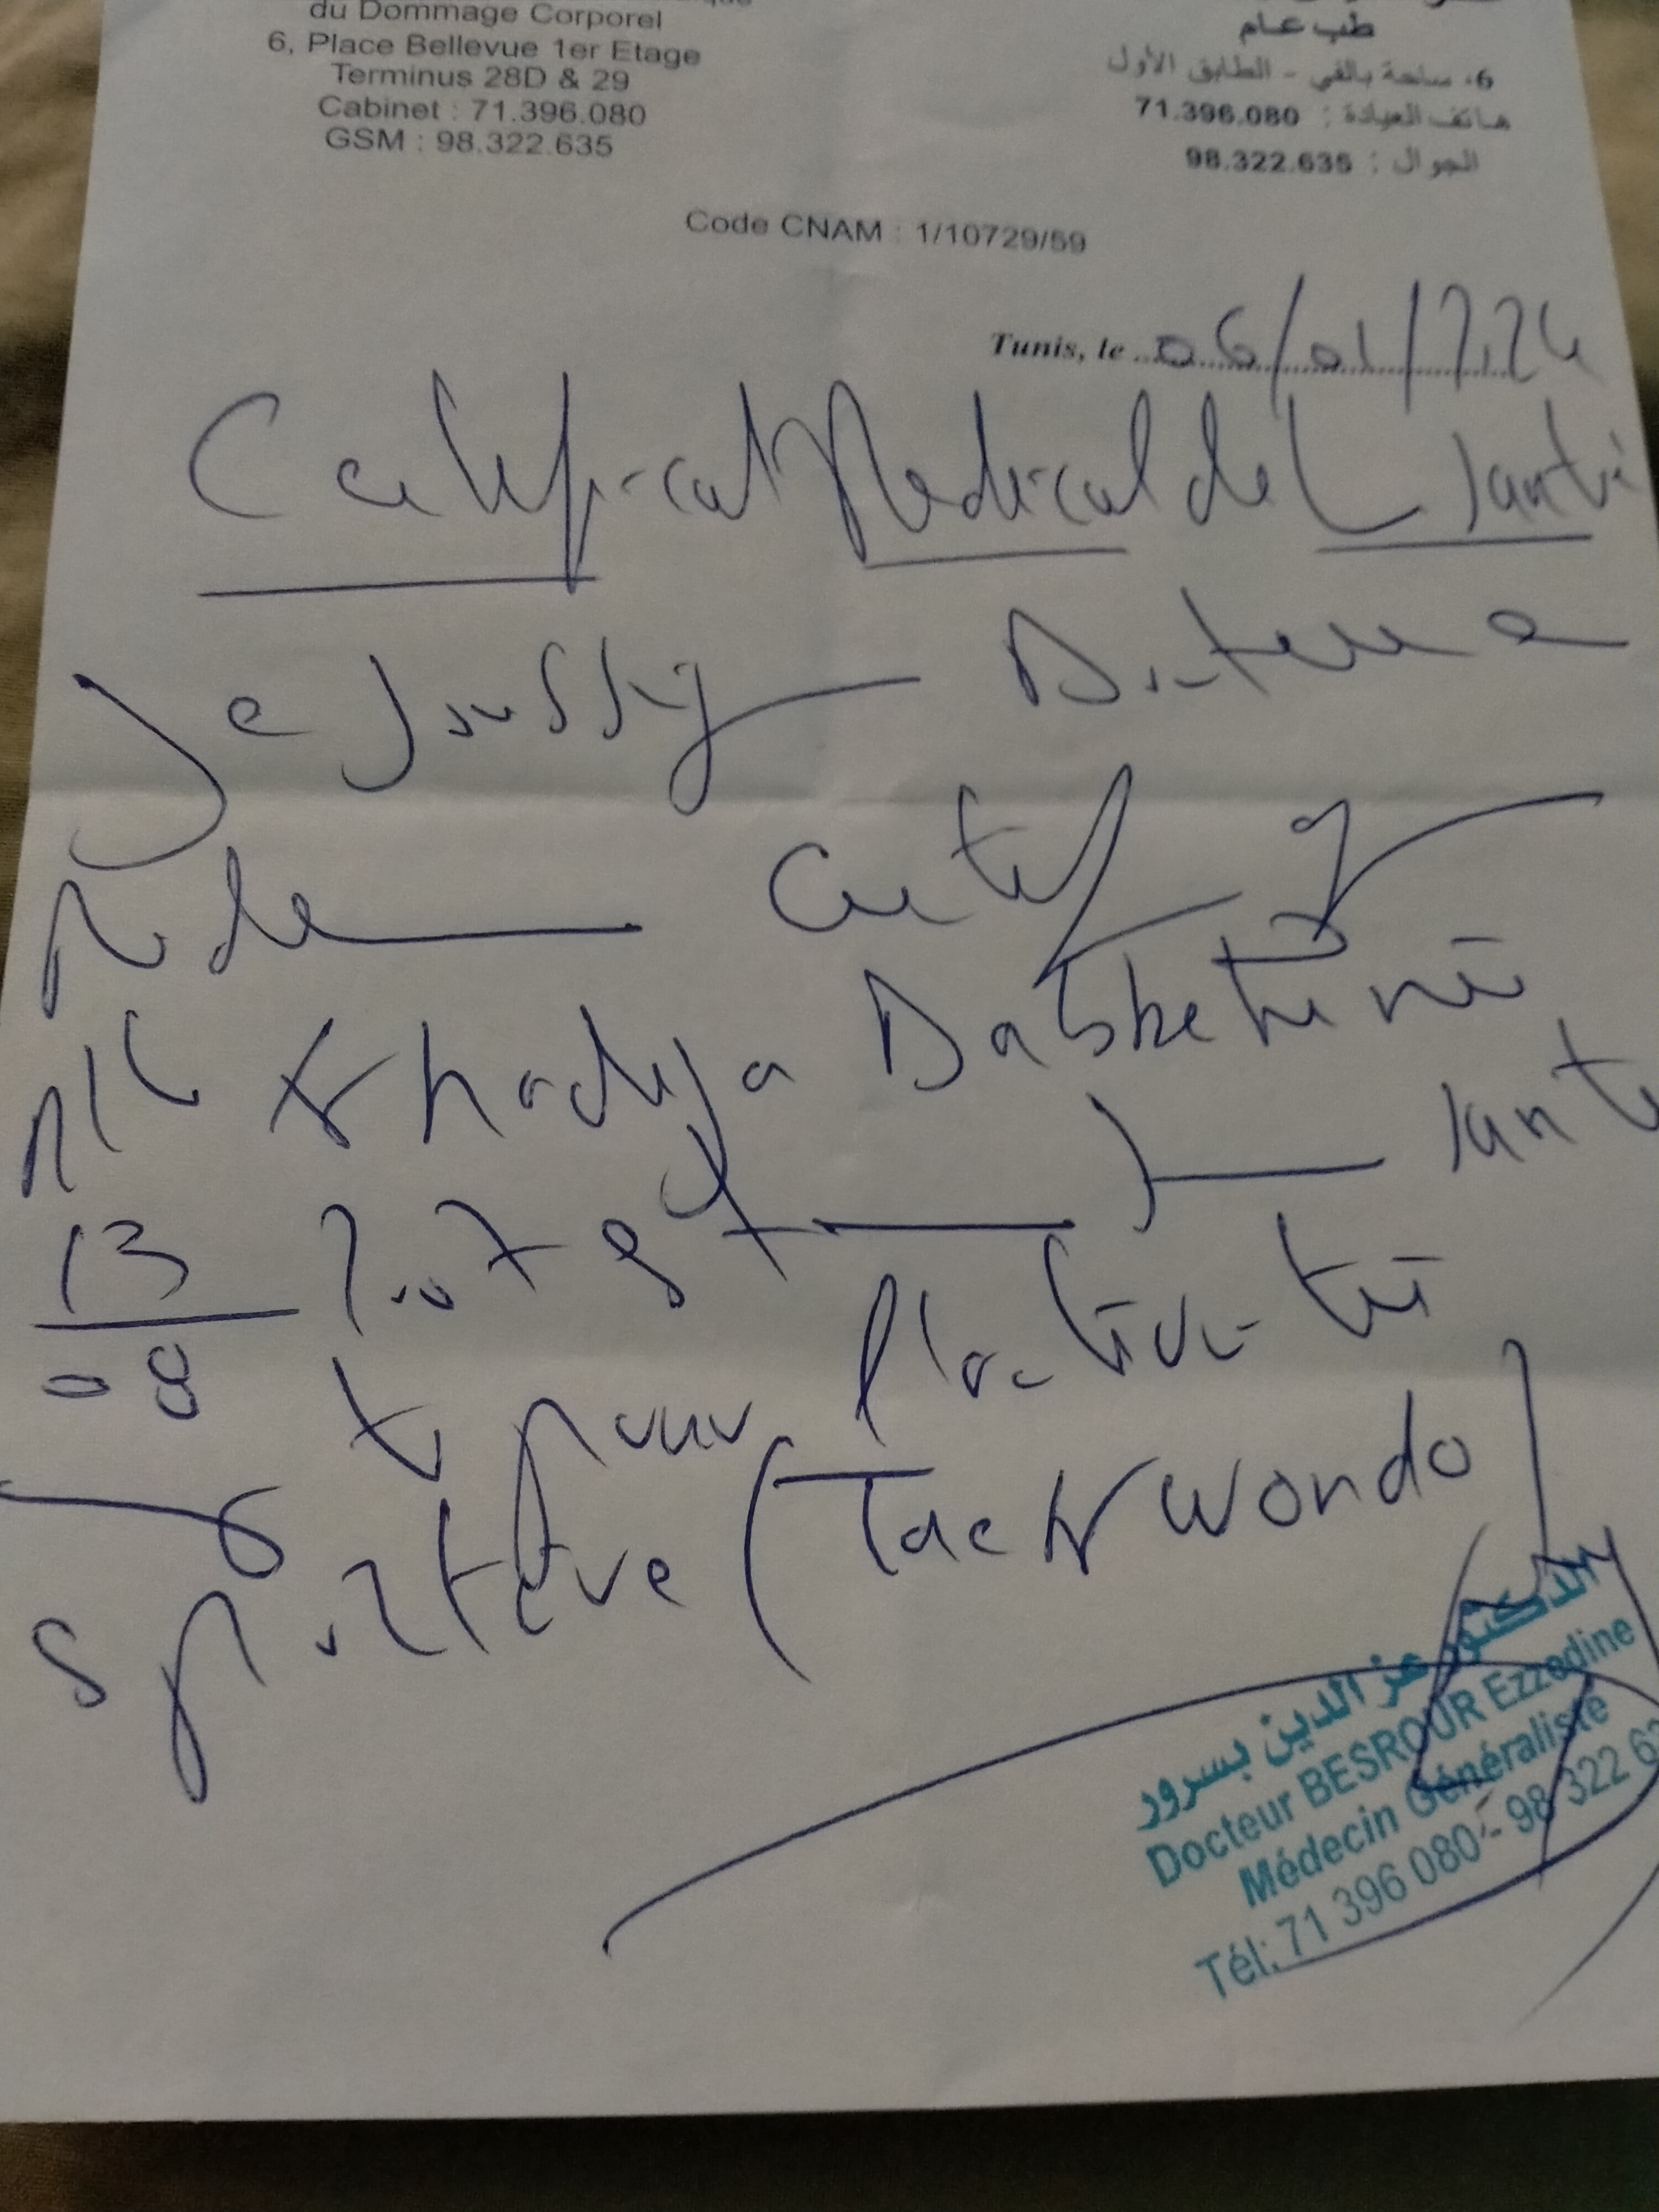 du Dommage Corporel
6, Place Bellevue 1er Etage
Terminus 28D & 29
Cabinet : 71.396.080
GSM : 98.322.635
طب عام
6، ساحة بالفي - الطابق الأول
هاتف العيادة : 71.396.080
الجوال : 98.322.635
Code CNAM : 1/10729/59
Tunis, le 06/01/2024
Certificat Medical de Santé
Je soussigné Docteur
certifie
Mlle Khadija née
13 2007 est santé
08
et pour l'activité
sportive (Taekwondo)
الدكتور عز الدين بسرور
Docteur BESROUR Ezzedine
Médecin Généraliste
Tél: 71 396 080 - 98 322 63